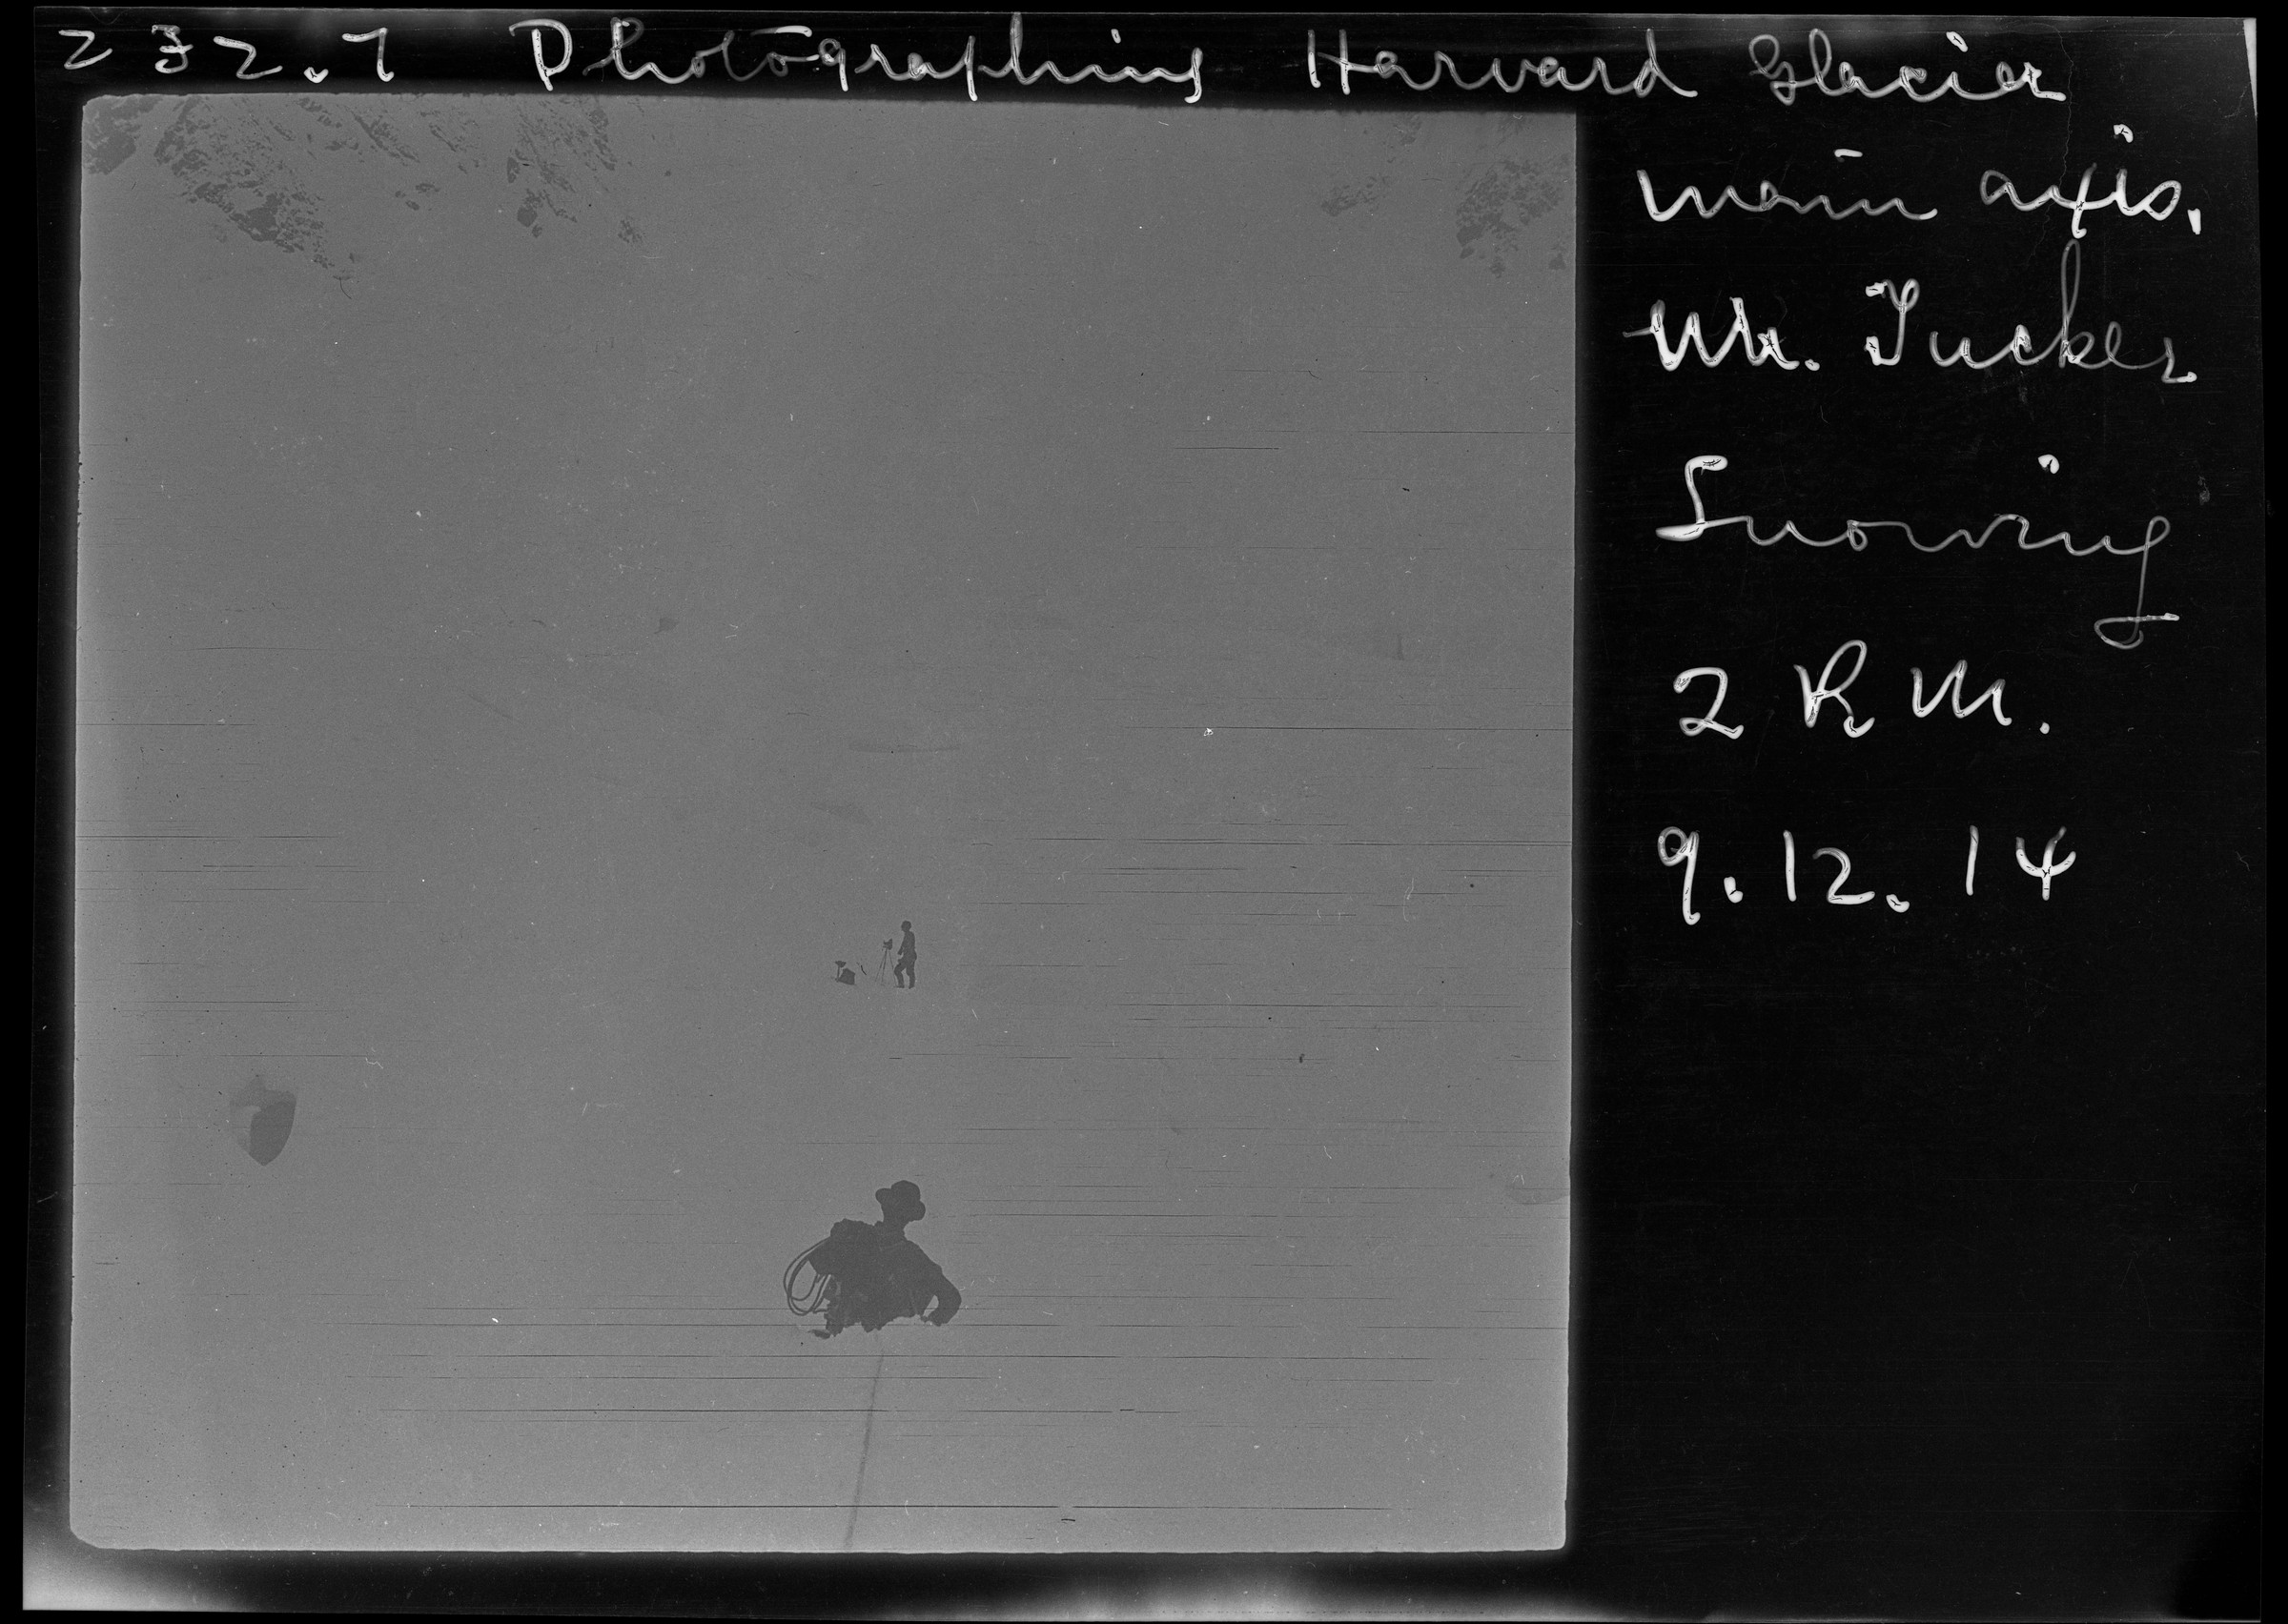 232.7 Photographing Harvard Glacier
main axis,
Mr. Tucker
Snowing
2 P.M.
9.12.14